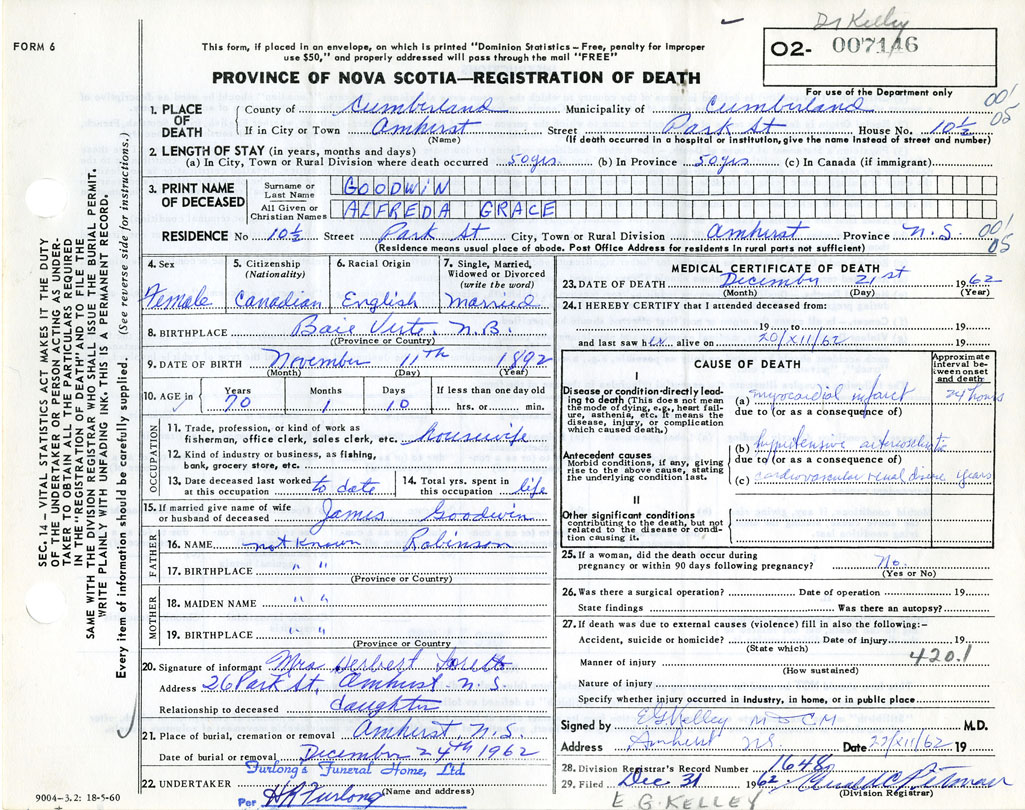 Dr Kelley
FORM 6
This form, if placed in an envelope, on which is printed "Dominion Statistics – Free, penalty for improper
use $50," and properly addressed will pass through the mail "FREE"
O2- 007146
For use of the Department only
PROVINCE OF NOVA SCOTIA—REGISTRATION OF DEATH
1. PLACE OF DEATH
County of Cumberland Municipality of Cumberland 001
If in City or Town Amherst Street Park St House No. 10½ 05
(Name) (If death occurred in a hospital or institution, give the name instead of street and number)
2. LENGTH OF STAY (in years, months and days)
(a) In City, Town or Rural Division where death occurred 50yrs (b) In Province 50yrs (c) In Canada (if immigrant)
3. PRINT NAME OF DECEASED
Surname or Last Name GOODWIN
All Given or Christian Names ALFREDA GRACE
RESIDENCE No 10½ Street Park St City, Town or Rural Division Amherst Province N.S. 001 05
(Residence means usual place of abode. Post Office Address for residents in rural parts not sufficient)
4. Sex Female
5. Citizenship (Nationality) Canadian
6. Racial Origin English
7. Single, Married, Widowed or Divorced (write the word) Married
8. BIRTHPLACE Baie Verte, N.B.
(Province or Country)
9. DATE OF BIRTH November 11th 1892
(Month) (Day) (Year)
10. AGE in Years 70 Months 1 Days 10 If less than one day old hrs. or min.
OCCUPATION
11. Trade, profession, or kind of work as
fisherman, office clerk, sales clerk, etc. housewife
12. Kind of industry or business, as fishing,
bank, grocery store, etc.
13. Date deceased last worked at this occupation to date
14. Total yrs. spent in this occupation life
15. If married give name of wife
or husband of deceased James Goodwin
FATHER
16. NAME not known Robinson
17. BIRTHPLACE " "
(Province or Country)
MOTHER
18. MAIDEN NAME " "
19. BIRTHPLACE " "
(Province or Country)
20. Signature of informant Mrs Herbert
Address 26 Park St, Amherst N.S.
Relationship to deceased daughter
21. Place of burial, cremation or removal Amherst, N.S.
Date of burial or removal December 24th 1962
Furlong's Funeral Home, Ltd.
22. UNDERTAKER
(Name and address)
Per H R Furlong
MEDICAL CERTIFICATE OF DEATH
23. DATE OF DEATH December 21st 1962
(Month) (Day) (Year)
24. I HEREBY CERTIFY that I attended deceased from:
19 to 19
and last saw her alive on 20/XII/62 19
CAUSE OF DEATH
Approximate interval between onset and death
I
Disease or condition directly leading to death (This does not mean the mode of dying, e.g., heart failure, asthenia, etc. It means the disease, injury, or complication which caused death.)
(a) myocardial infarct 24 hours
due to (or as a consequence of)
Antecedent causes
Morbid conditions, if any, giving rise to the above cause, stating the underlying condition last.
(b) hypertensive arteriosclerotic
due to (or as a consequence of)
(c) cardiovascular renal disease years
II
Other significant conditions
contributing to the death, but not related to the disease or condition causing it.
25. If a woman, did the death occur during
pregnancy or within 90 days following pregnancy? No.
(Yes or No)
26. Was there a surgical operation? Date of operation 19
State findings Was there an autopsy?
27. If death was due to external causes (violence) fill in also the following:-
Accident, suicide or homicide? Date of injury 19
(State which)
420.1
Manner of injury
(How sustained)
Nature of injury
Specify whether injury occurred in industry, in home, or in public place
Signed by E G Kelley M D C M M.D.
Address Amherst NS Date 22/XII/62 19
28. Division Registrar's Record Number 1648
29. Filed Dec 31 1962
(Division Registrar)
E G. KELLEY
SEC. 14 – VITAL STATISTICS ACT MAKES IT THE DUTY
OF THE UNDERTAKER PERSON ACTING AS UNDER-
TAKER TO OBTAIN ALL THE PARTICULARS REQUIRED
IN THE "REGISTRATION OF DEATH" AND TO FILE THE
SAME WITH THE DIVISION REGISTRAR WHO SHALL ISSUE THE BURIAL PERMIT.
WRITE PLAINLY WITH UNFADING INK. THIS IS A PERMANENT RECORD.
Every item of information should be carefully supplied. (See reverse side for instructions.)
9004-3.2: 18-5-60